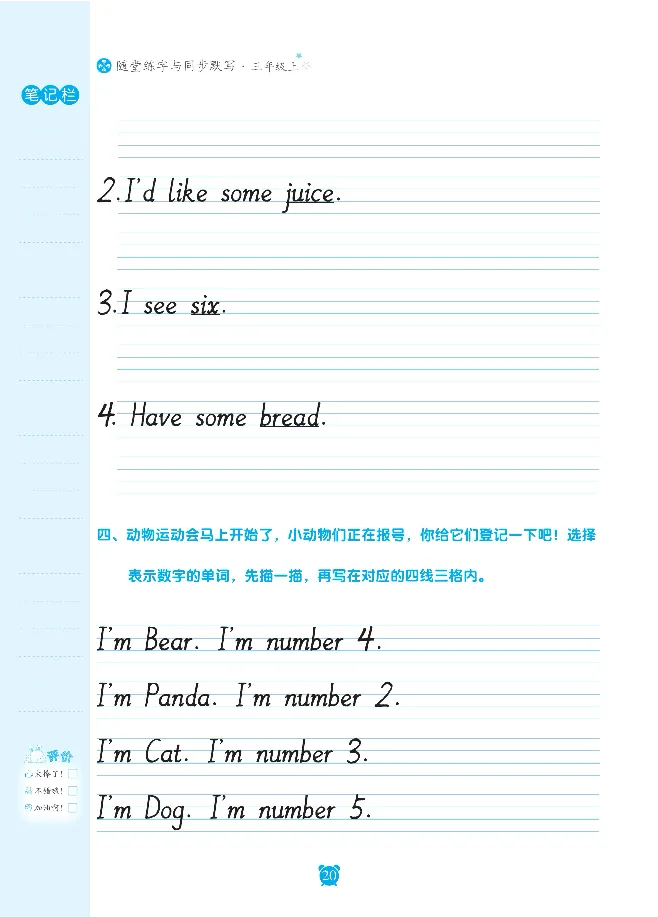 随堂练字与同步默写·三年级上
笔记栏
2.I'd like some juice.
3.I see six.
4. Have some bread.
四、动物运动会马上开始了，小动物们正在报号，你给它们登记一下吧！选择
表示数字的单词，先描一描，再写在对应的四线三格内。
I'm Bear. I'm number 4.
I'm Panda. I'm number 2.
I'm Cat. I'm number 3.
I'm Dog. I'm number 5.
评价
太棒了！
不错哦！
加油啊！
20